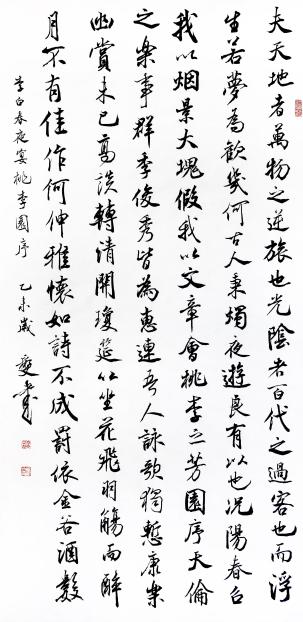 夫天地者萬物之逆旅也光陰者百代之過客也而浮
生若夢為歡幾何古人秉燭夜遊良有以也況陽春召
我以烟景大塊假我以文章會桃李之芳園序天倫
之樂事群季俊秀皆為惠連吾人詠歌獨慙康樂
幽賞未已高談轉清開瓊筵以坐花飛羽觴而醉
月不有佳作何伸雅懷如詩不成罰依金谷酒數
李白春夜宴桃李園序 乙未歲